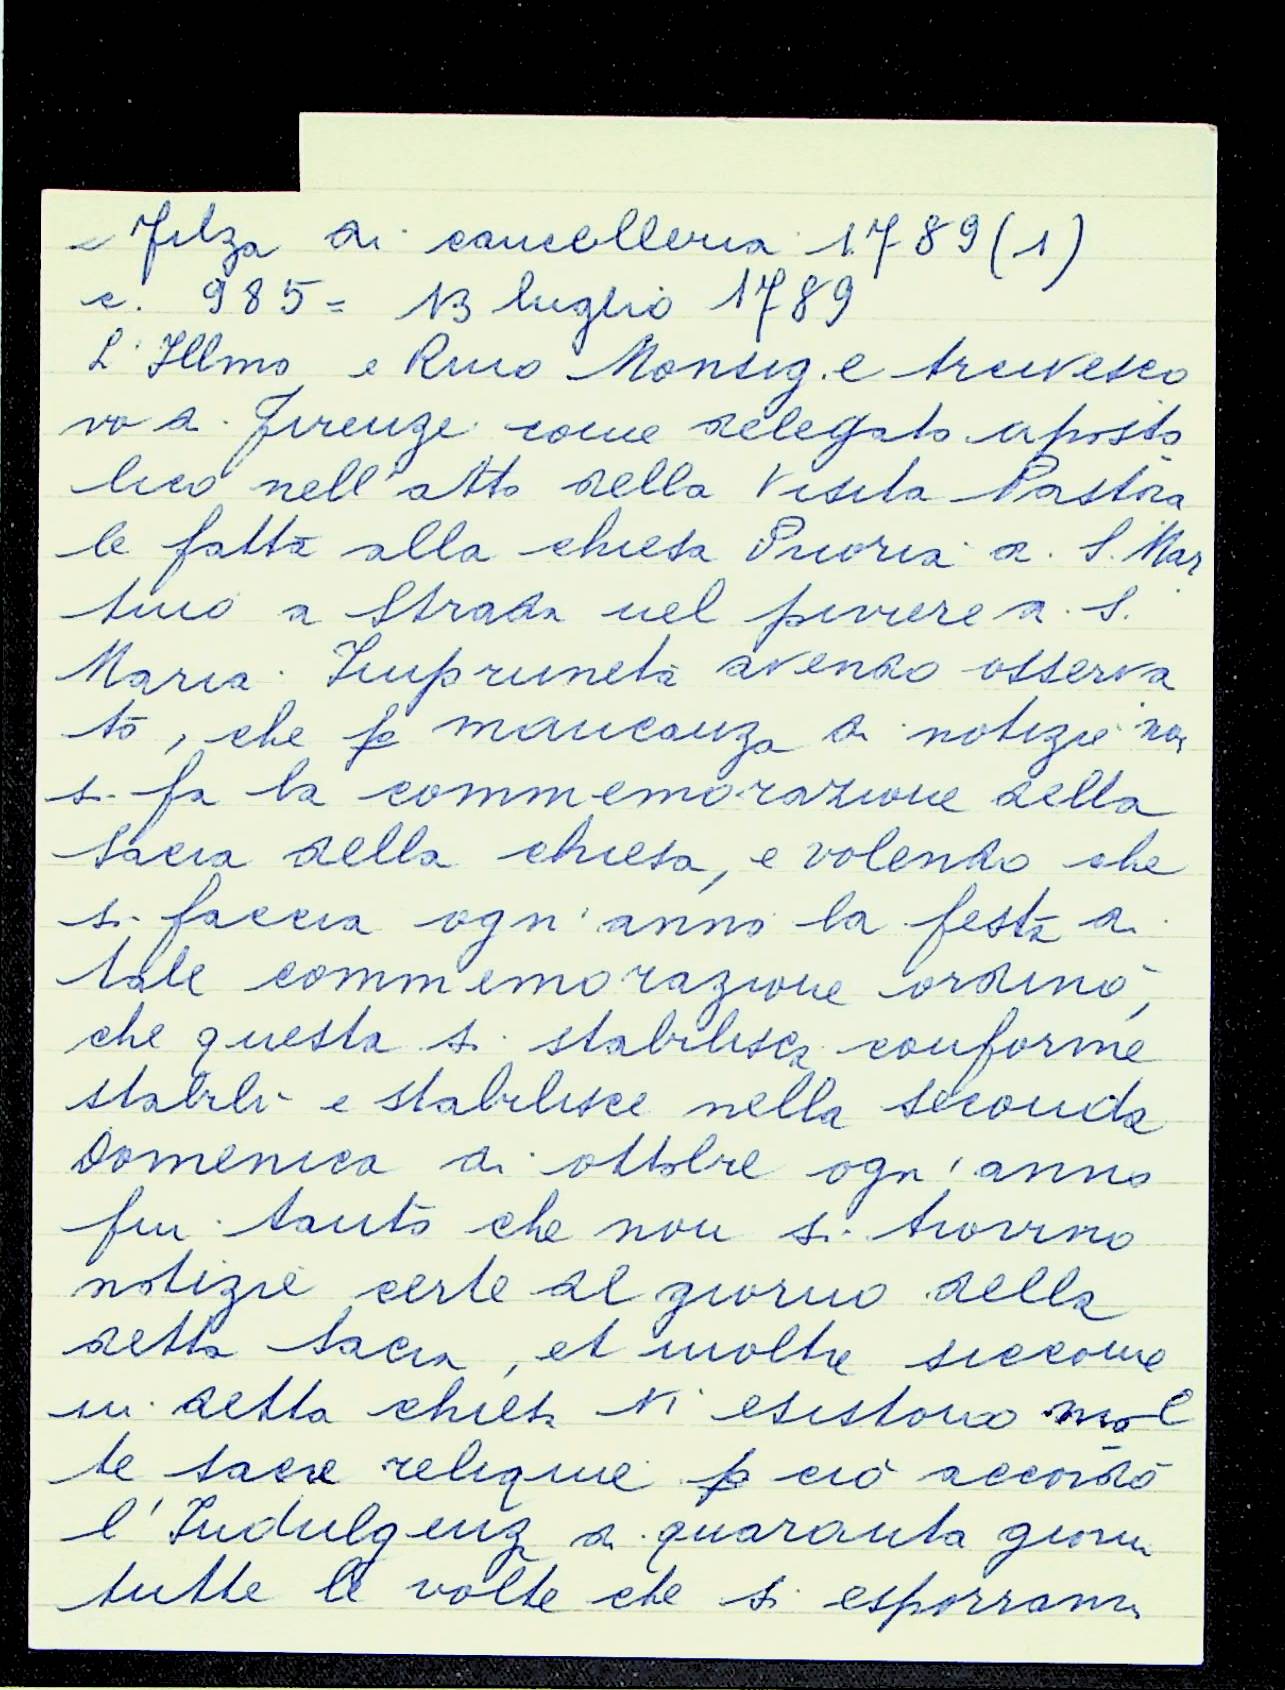 - Filza di cancelleria 1789 (1)
c. 985 = 13 luglio 1789
L'Illmo e Rmo Monsig.e Arcivesco
vo di Firenze come delegato aposto
lico nell'atto della Visita Pastora
le fatta alla chiesa Prioria di S. Mar
tino a Strada nel piviere di S.
Maria Impruneta avendo osserva
to, che p mancanza di notizie non
si fa la commemorazione della
Sacra della chiesa, e volendo che
si faccia ogn'anno la festa di
tale commemorazione ordinò,
che questa si stabilisca conforme
stabilì e stabilisce nella seconda
Domenica di ottobre ogn'anno
fin tanto che non si trovino
notizie certe del giorno della
detta Sacra, et inoltre siccome
in detta chiesa vi esistono mol
te sacre reliquie p ciò accordò
l'Indulgenza di quaranta giorni
tutte le volte che si esporranno